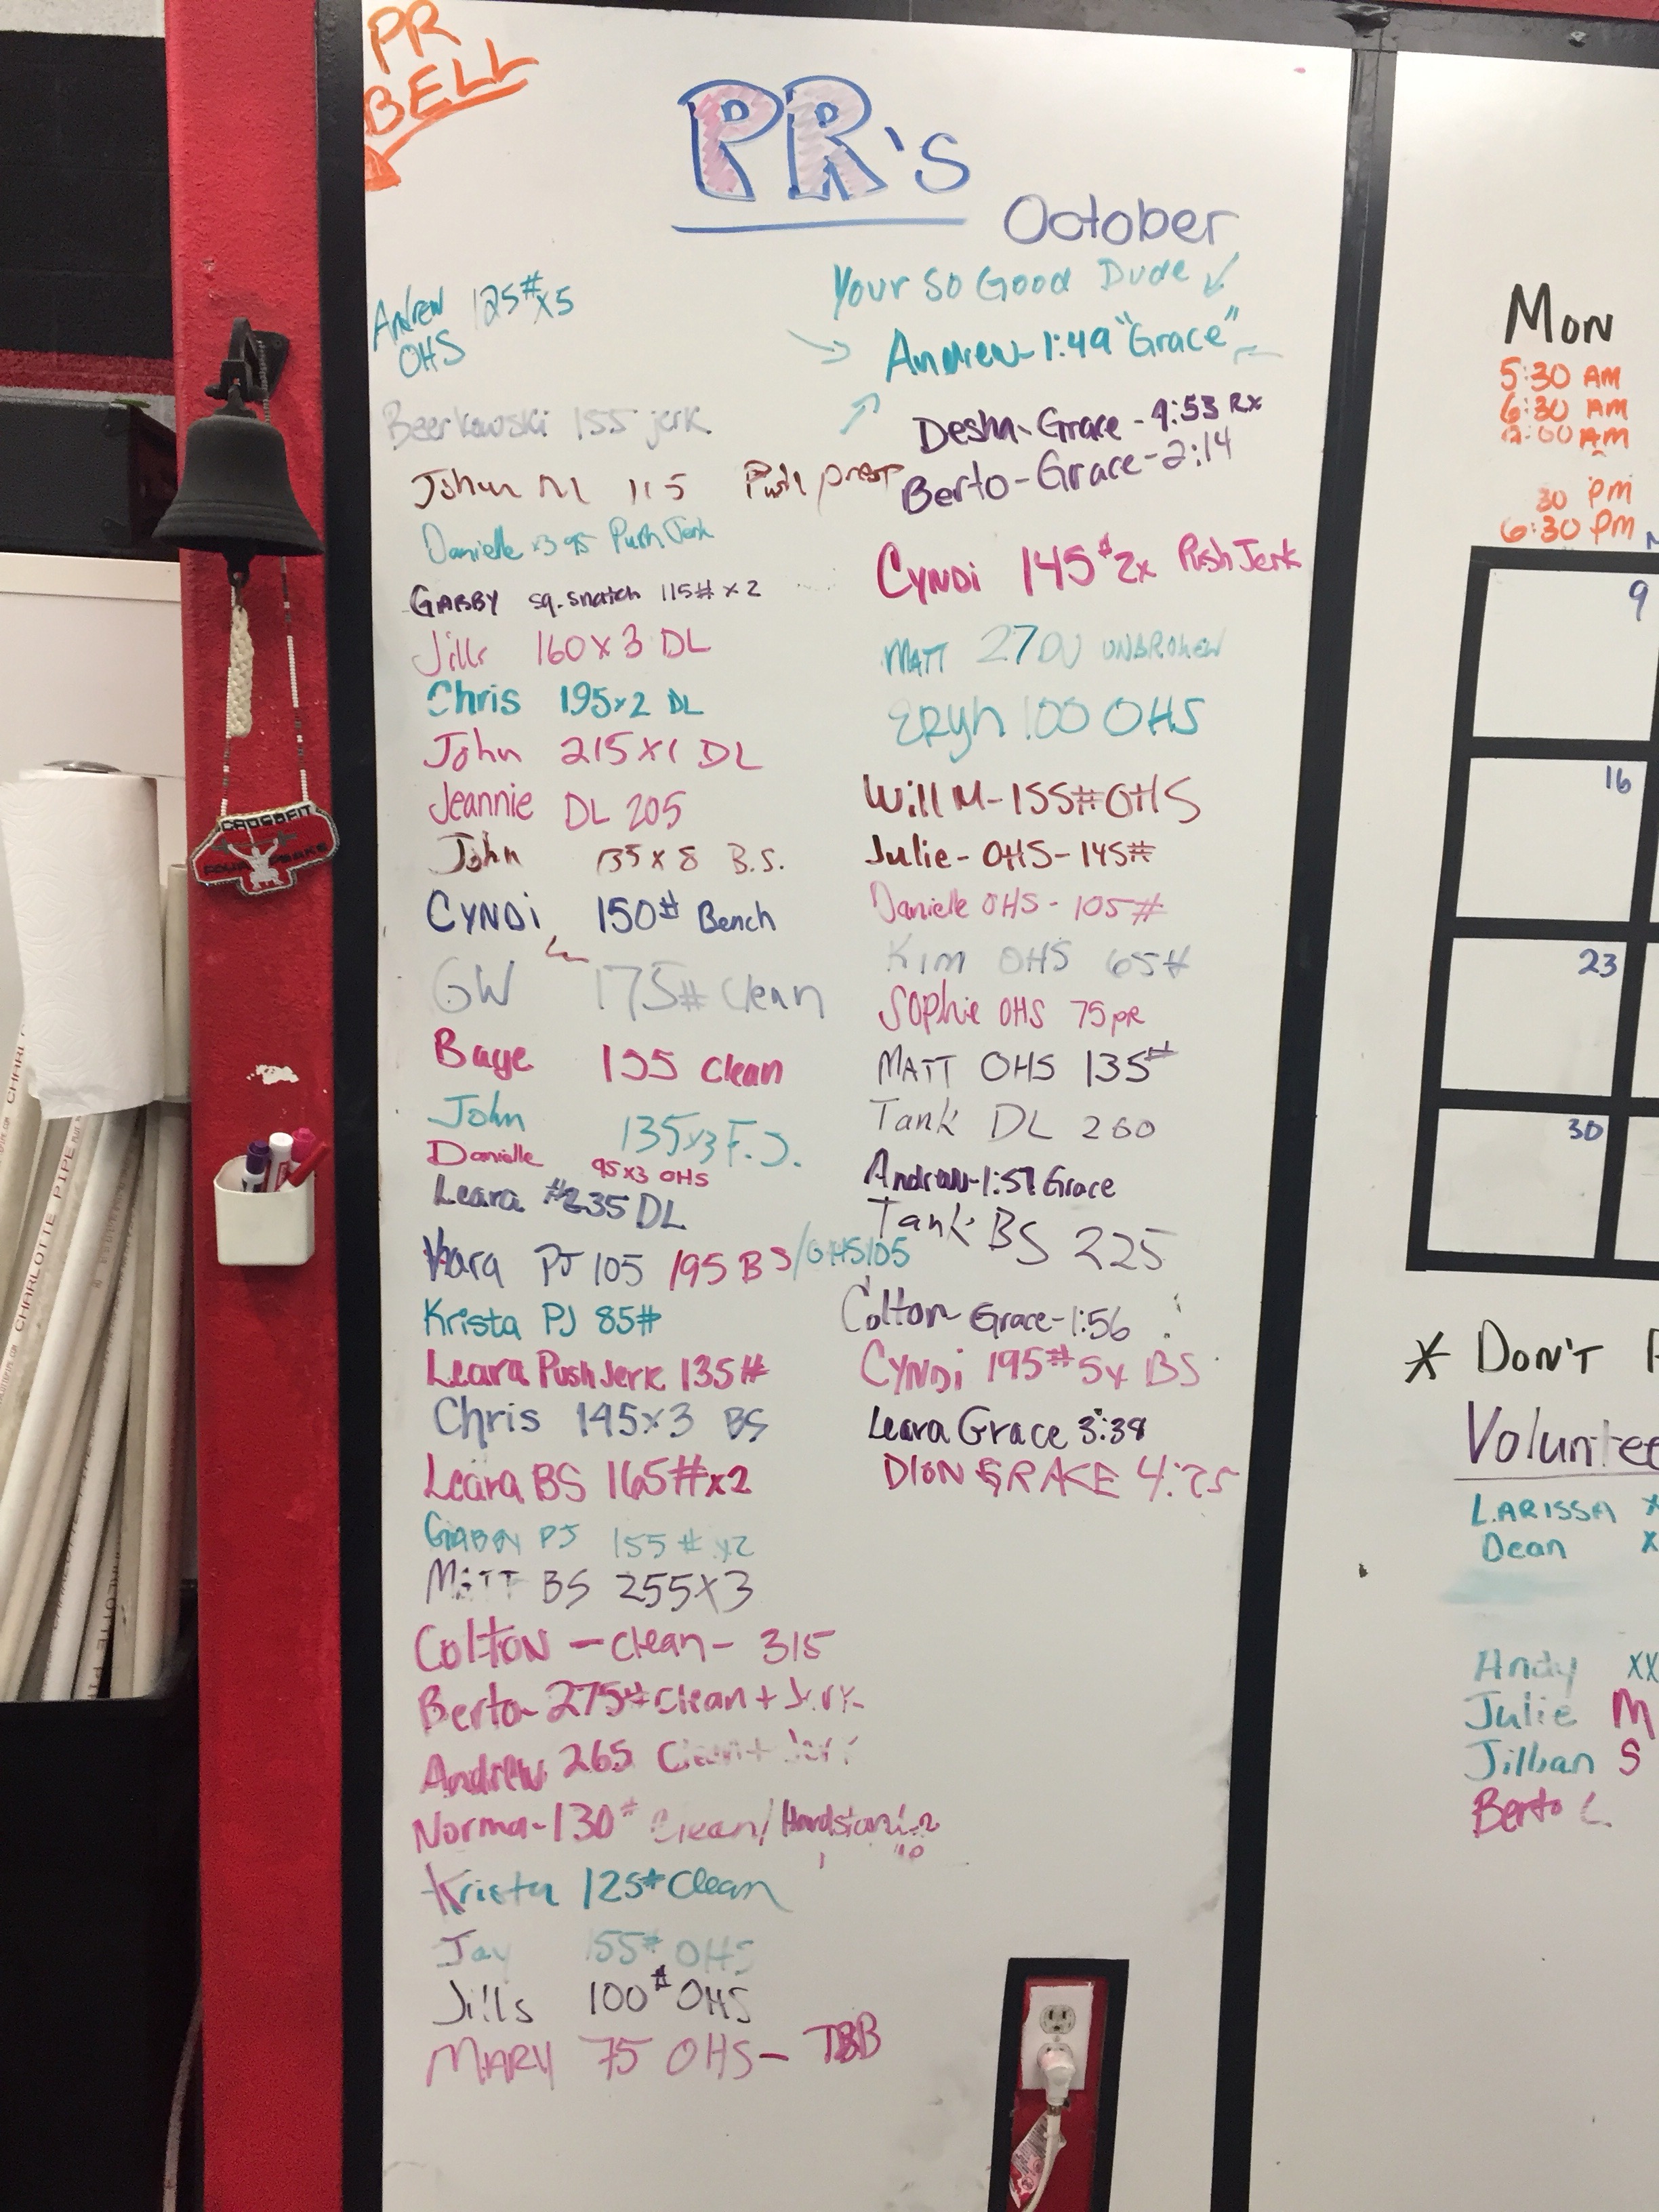 PR
BELL
PR's
October
Andrew 125# x5
OHS
Beerkowski 155 jerk
John M 115 Push press
Danielle x3 95 Push Jerk
GABBY sq. snatch 115# x 2
Jills 160 x 3 DL
Chris 195x2 DL
John 215 x1 DL
Jeannie DL 205
John 135 x 8 B.S.
CYNDi 150# Bench
GW 175# Clean
Baye 155 Clean
John 135x3 F.J.
Danielle 95x3 OHS
Leara #235 DL
Kara PJ 105 195 BS/OHS 105
Krista PJ 85#
Leara Push Jerk 135#
Chris 145x3 BS
Leara BS 165#x2
GABBY PJ 155# x2
MATT BS 255X3
Colton - Clean - 315
Berto- 275# Clean + Jerk
Andrew 265 Clean + Jerk
Norma- 130# Clean/
Krista 125# Clean
Jay 155# OHS
Jills 100# OHS
MARY 75 OHS - TBB
Your So Good Dude
Andrew- 1:49 "Grace"
Desha- Grace - 4:53 Rx
Berto- Grace- 2:14
CYNDi 145# 2x Push Jerk
MATT 27 DU UNBROKEN
ERyn 100 OHS
Will M- 155# OHS
Julie- OHS- 145#
Danielle OHS - 105#
Kim OHS 65#
Sophie OHS 75 pR
MATT OHS 135#
Tank DL 260
Andrew- 1:57 Grace
Tank BS 225
Colton Grace- 1:56
CYNDi 195# 5x BS
Leara Grace 3:38
DION GRAKE 4:25
CROSSFIT
Mon
5:30 AM
6:30 AM
AM
30 pm
6:30 PM
9
16
23
30
* DON'T
Voluntee
LARISSA x
Dean x
Andy xx
Julie M
Jillian S
Berto L
CHARLOTTE PIPE